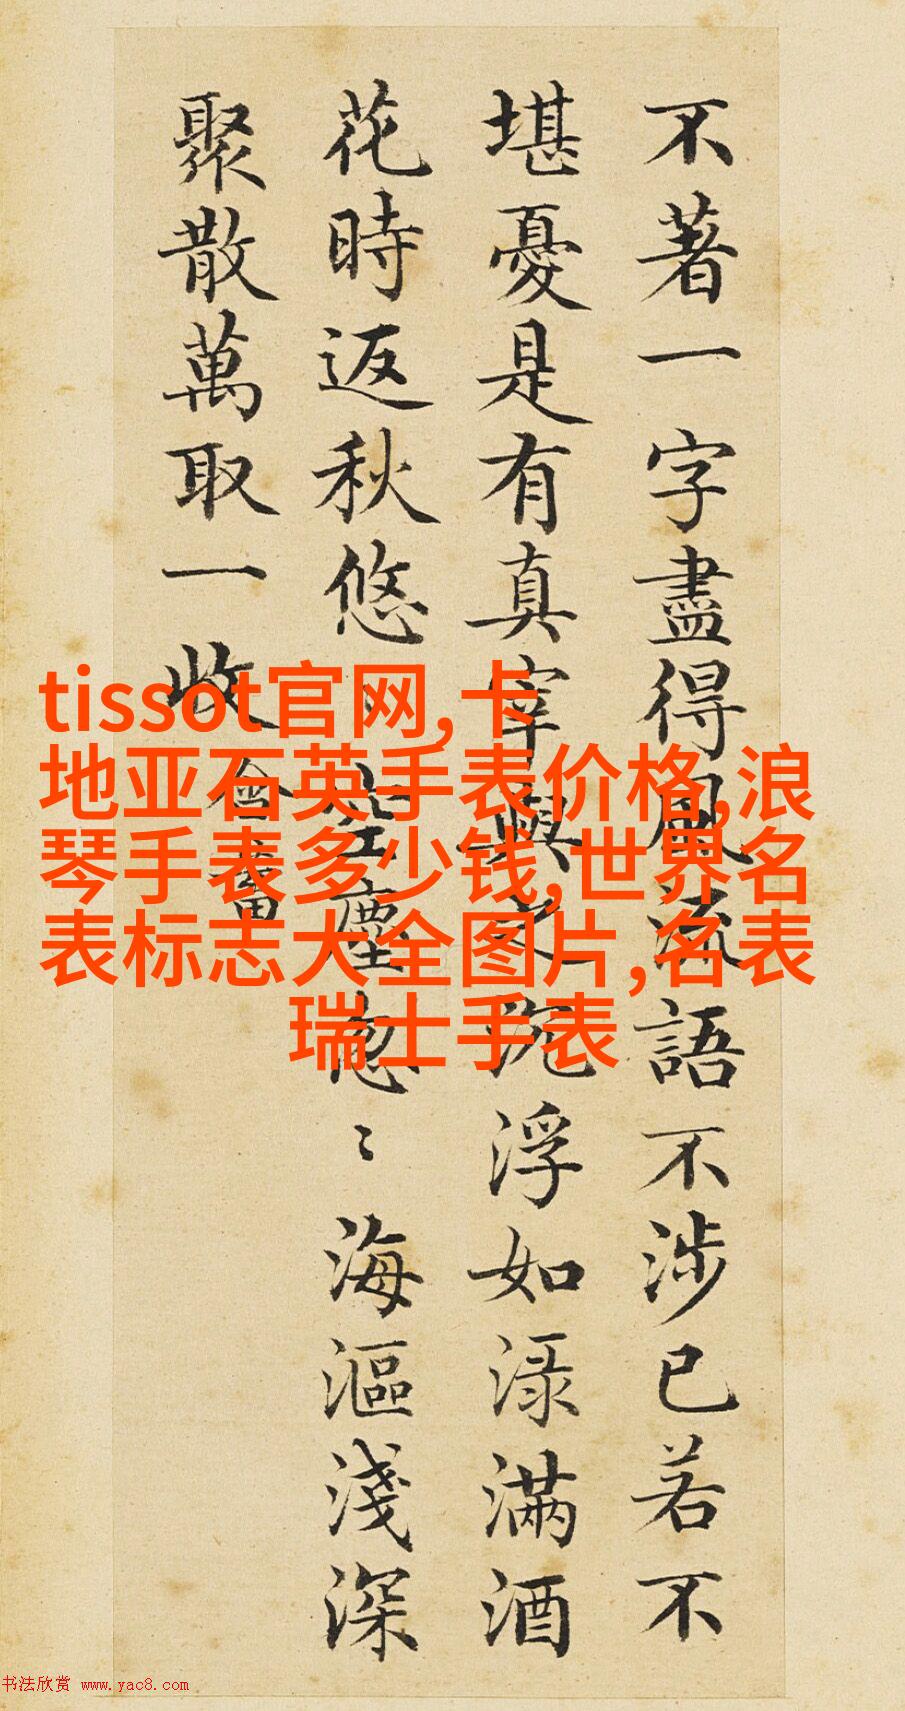 不著一字盡得風流語不涉已若不
堪憂是有真宰與之沉浮如淥滿酒
花時返秋悠〻空塵忽〻海漚淺深
聚散萬取一收
含蓄
tissot官网,卡
地亚石英手表价格,浪
琴手表多少钱,世界名
表标志大全图片,名表
瑞士手表
书法欣赏 www.yac8.com